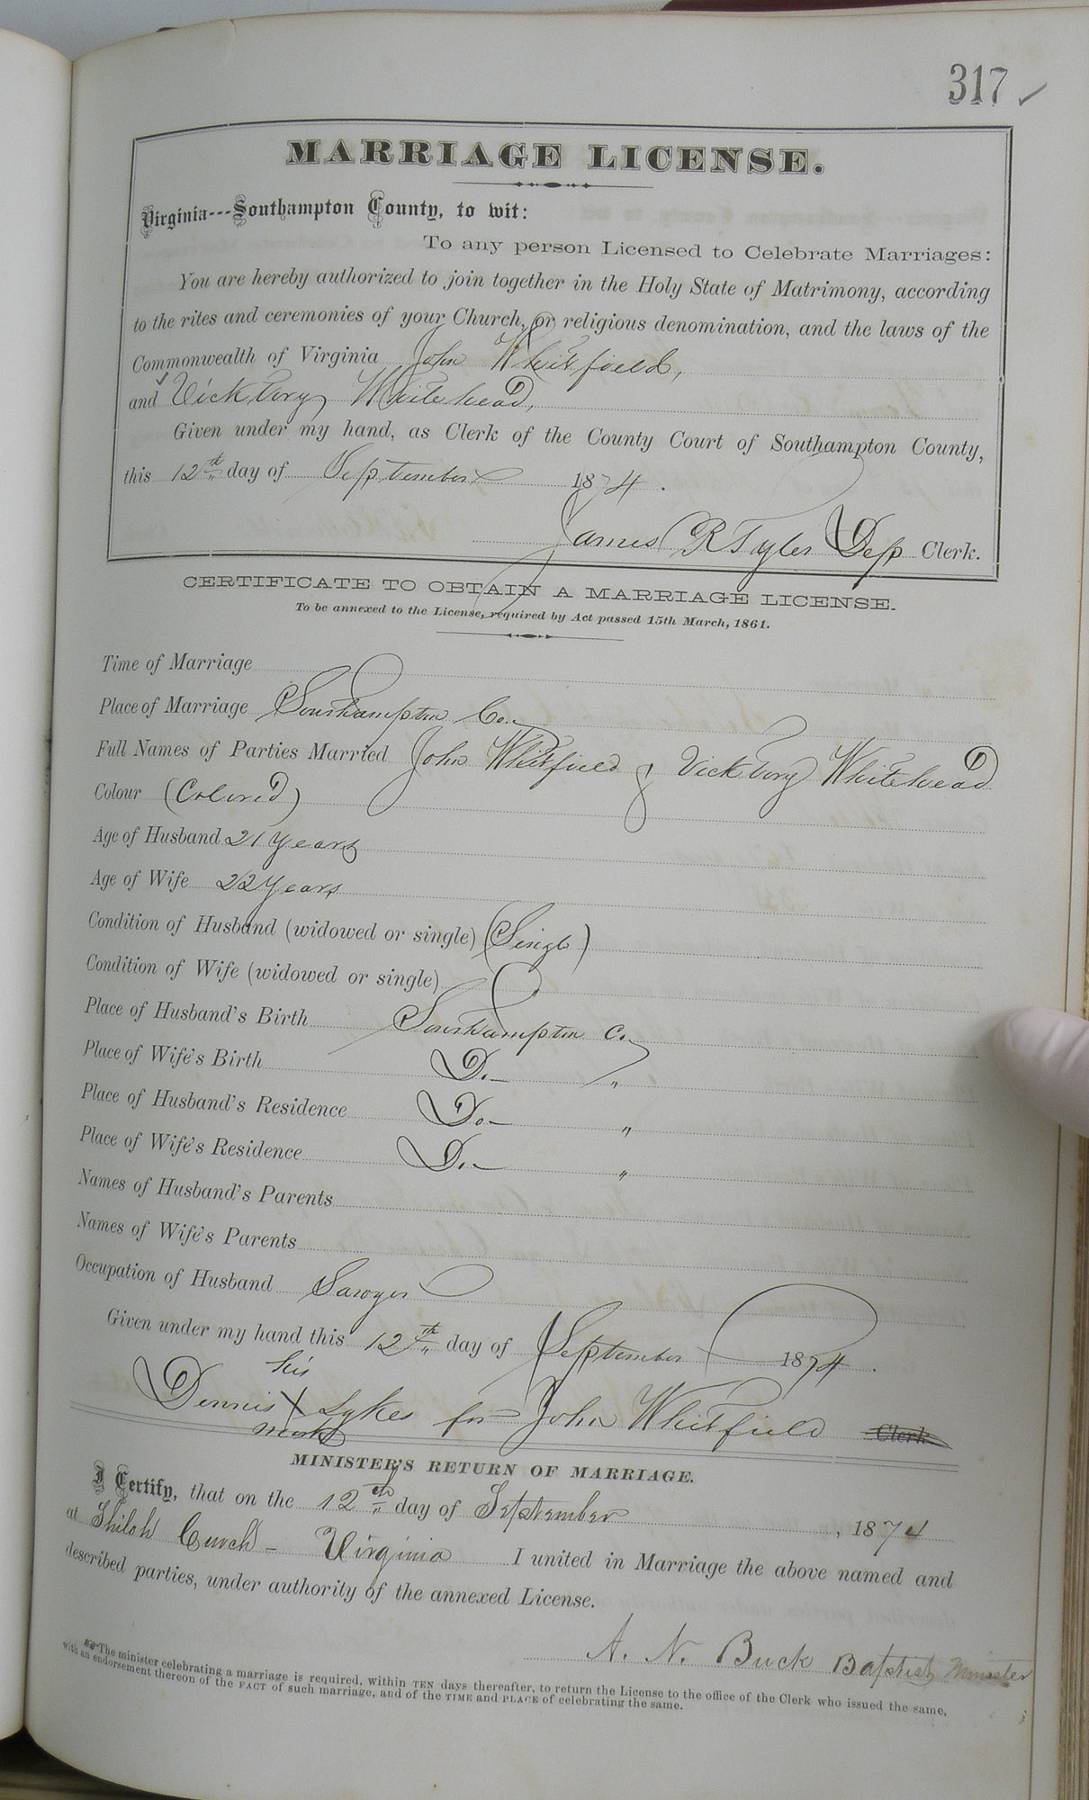 317 ✓
MARRIAGE LICENSE.
Virginia---Southampton County, to wit:
To any person Licensed to Celebrate Marriages:
You are hereby authorized to join together in the Holy State of Matrimony, according
to the rites and ceremonies of your Church, or religious denomination, and the laws of the
Commonwealth of Virginia John Whitfield,
and Vicksbury Whitehead,
Given under my hand, as Clerk of the County Court of Southampton County,
this 12th day of September 1874.
James R Tyler Dep Clerk.
CERTIFICATE TO OBTAIN A MARRIAGE LICENSE.
To be annexed to the License, required by Act passed 15th March, 1861.
Time of Marriage
Place of Marriage Southampton Co.
Full Names of Parties Married John Whitfield & Vicksbury Whitehead
Colour (Colored)
Age of Husband 21 Years
Age of Wife 22 Years
Condition of Husband (widowed or single) (Single)
Condition of Wife (widowed or single)
Place of Husband's Birth Southampton Co.
Place of Wife's Birth Do- "
Place of Husband's Residence Do- "
Place of Wife's Residence Do- "
Names of Husband's Parents
Names of Wife's Parents
Occupation of Husband Sawyer
Given under my hand this 12th day of September 1874.
his
Dennis X Sykes for John Whitfield Clerk
mark
MINISTER'S RETURN OF MARRIAGE.
I Certify, that on the 12th day of September, 1874
at Shiloh Curch- Virginia I united in Marriage the above named and
described parties, under authority of the annexed License.
A. N. Buck Baptist Minister
The minister celebrating a marriage is required, within TEN days thereafter, to return the License to the office of the Clerk who issued the same,
with an endorsement thereon of the FACT of such marriage, and of the TIME and PLACE of celebrating the same.